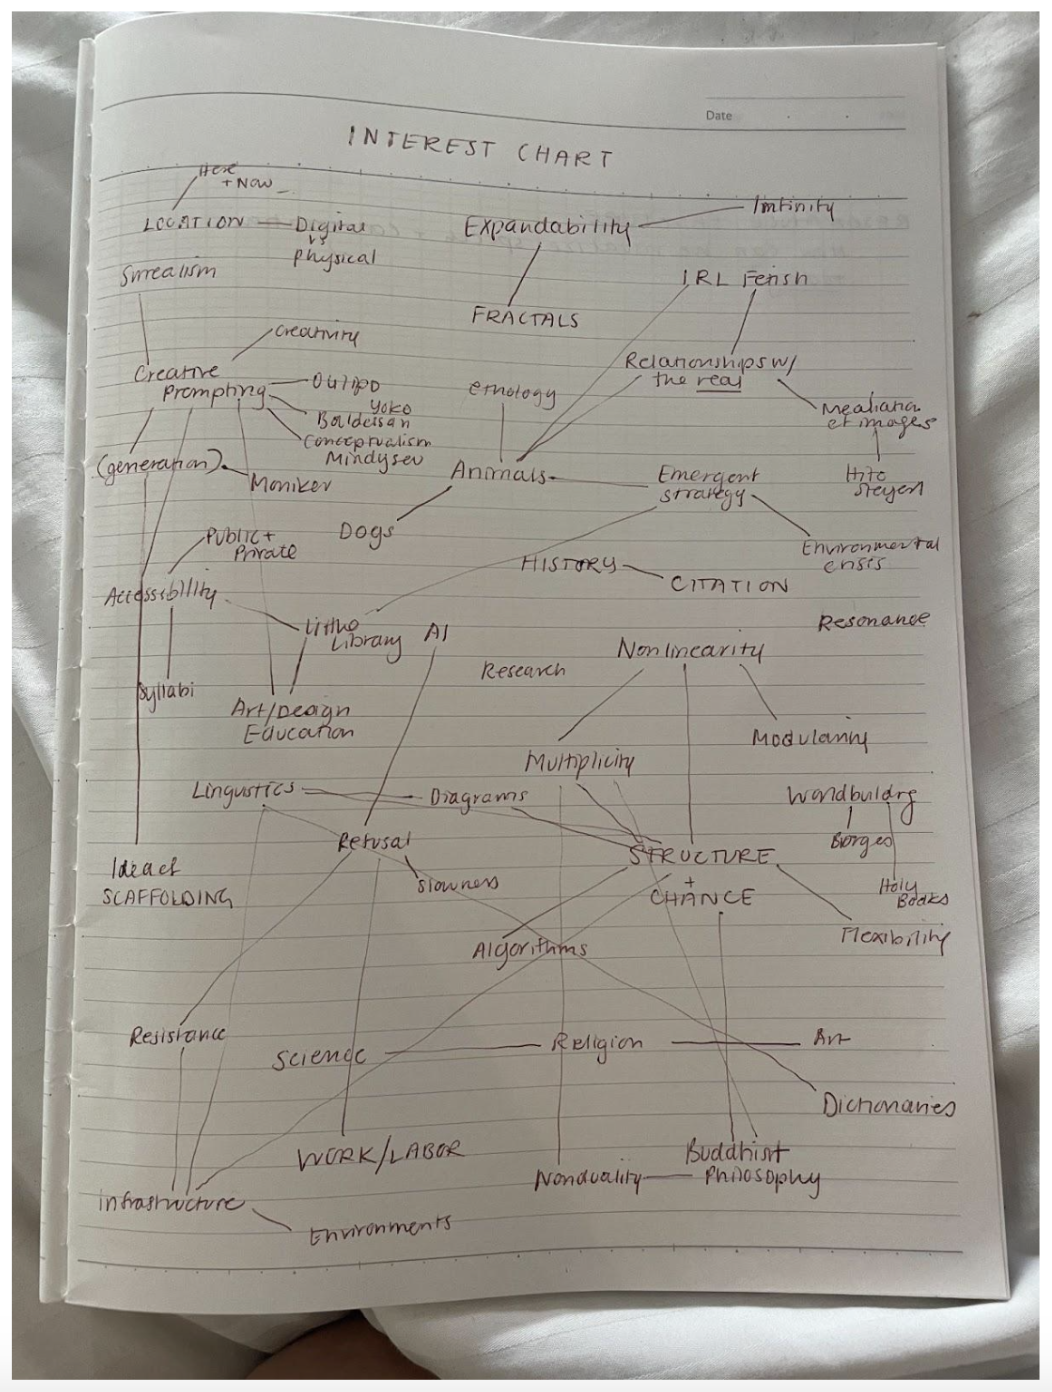 Date
INTEREST CHART
Here
+ Now
LOCATION
Digital
vs
Physical
Expandability
Infinity
Surrealism
IRL Fetish
FRACTALS
Creativity
Creative
Prompting
Oulipo
Yoko
Baldessari
Conceptualism
Mindysev
Ethology
Relationships w/
the real
Mediation
of images
Hito
Steyerl
(generation)
Moniker
Animals
Emergent
strategy
Dogs
Public +
Private
Environmental
crisis
HISTORY
CITATION
Accessibility
Litho
Library
AI
Resonance
Research
Nonlinearity
Syllabi
Art/Design
Education
Multiplicity
Modularity
Linguistics
Diagrams
Worldbuildng
Borges
Holy
Books
Refusal
Slowness
STRUCTURE
+
CHANCE
Idea of
SCAFFOLDING
Algorithms
Flexibility
Resistance
Science
Religion
Art
Dictionaries
WORK/LABOR
Nonduality
Buddhist
Philosophy
Infrastructure
Environments